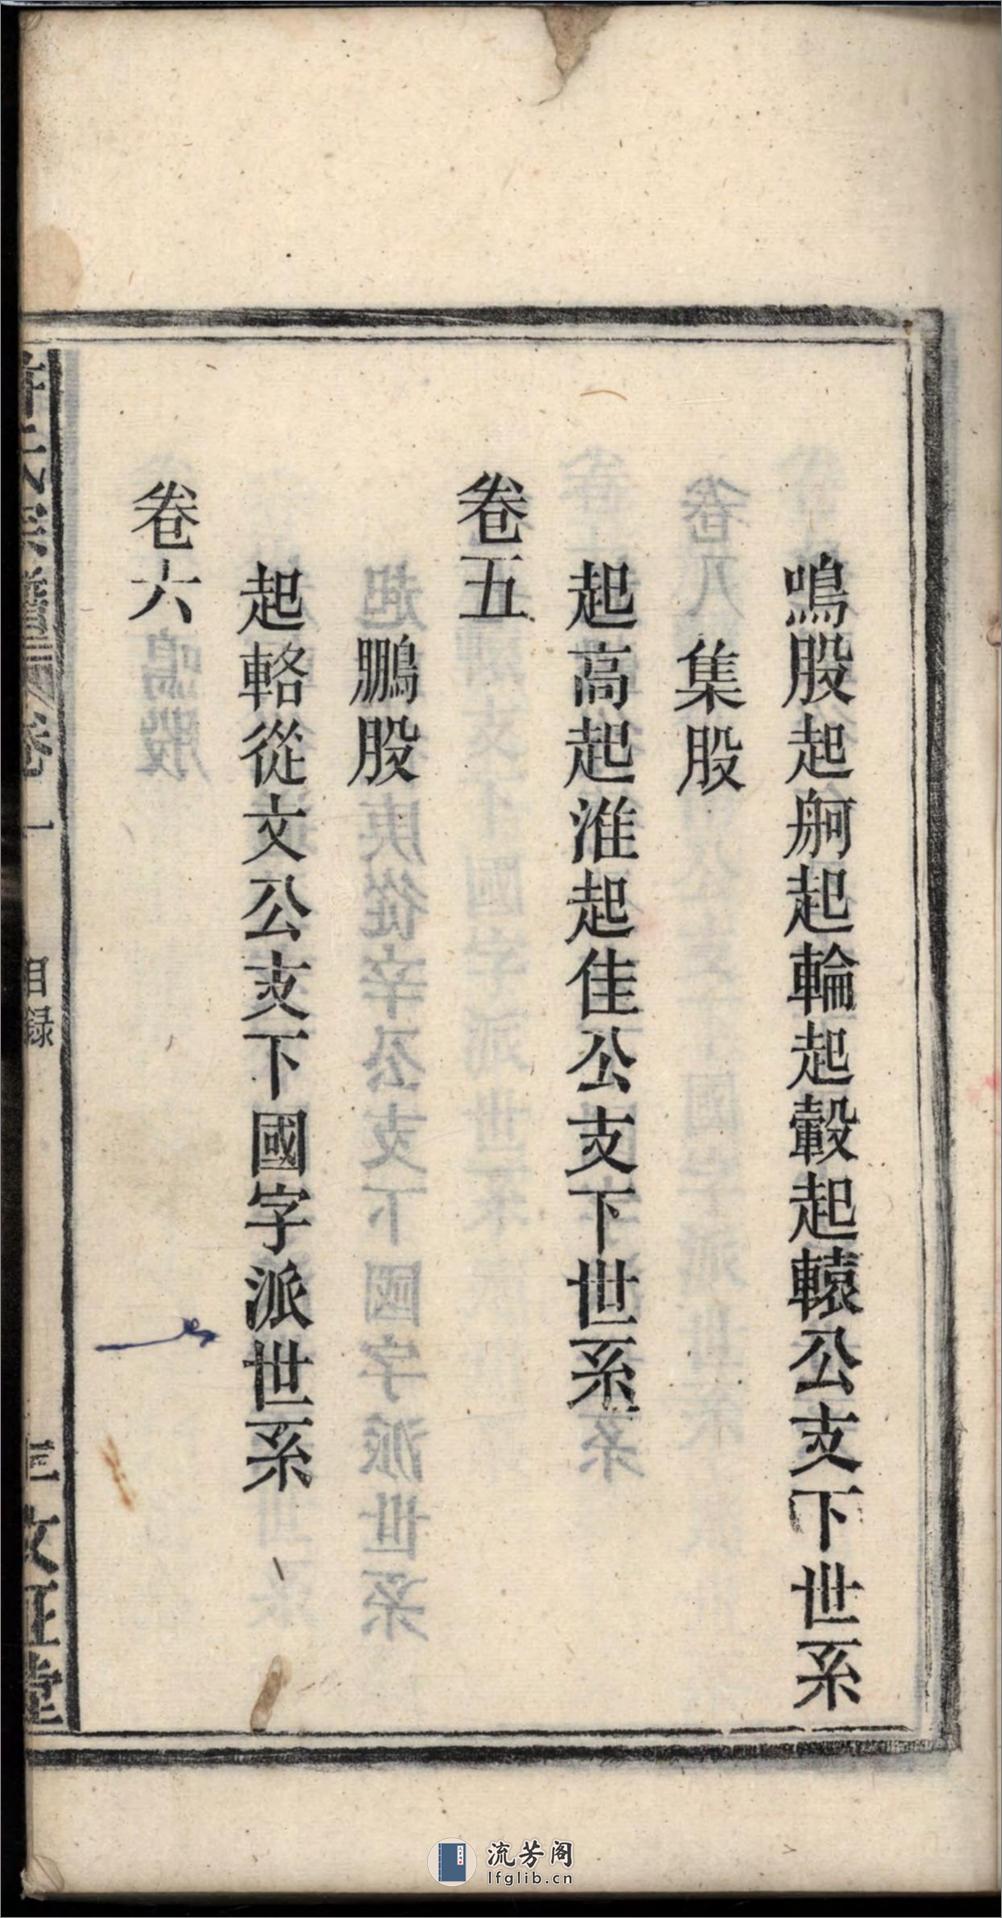 鳴股起舸起輪起轂起轅公支下世系
集股
起高起淮起佳公支下世系
卷五
鵬股
起輅從文公支下國字派世系
卷六
氏宗譜 卷一 目錄
流芳阁
lfglib.cn